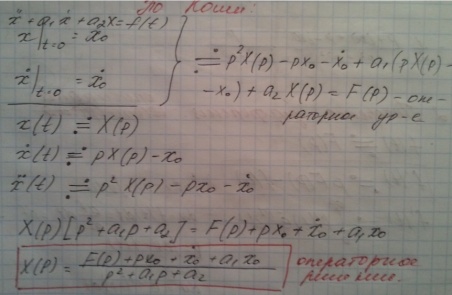 по Коши:
ẍ + a₁ẋ + a₂x = f(t)
x|t=0 = ẋ₀
ẋ|t=0 = ẋ₀
≓ p²X(p) - px₀ - ẋ₀ + a₁(pX(p) -
- x₀) + a₂X(p) = F(p) - опе-
раторное ур-е
x(t) ≓ X(p)
ẋ(t) ≓ pX(p) - x₀
ẍ(t) ≓ p²X(p) - px₀ - ẋ₀
X(p)[p² + a₁p + a₂] = F(p) + px₀ + ẋ₀ + a₁x₀
X(p) = (F(p) + px₀ + ẋ₀ + a₁x₀) / (p² + a₁p + a₂) операторное
решение.